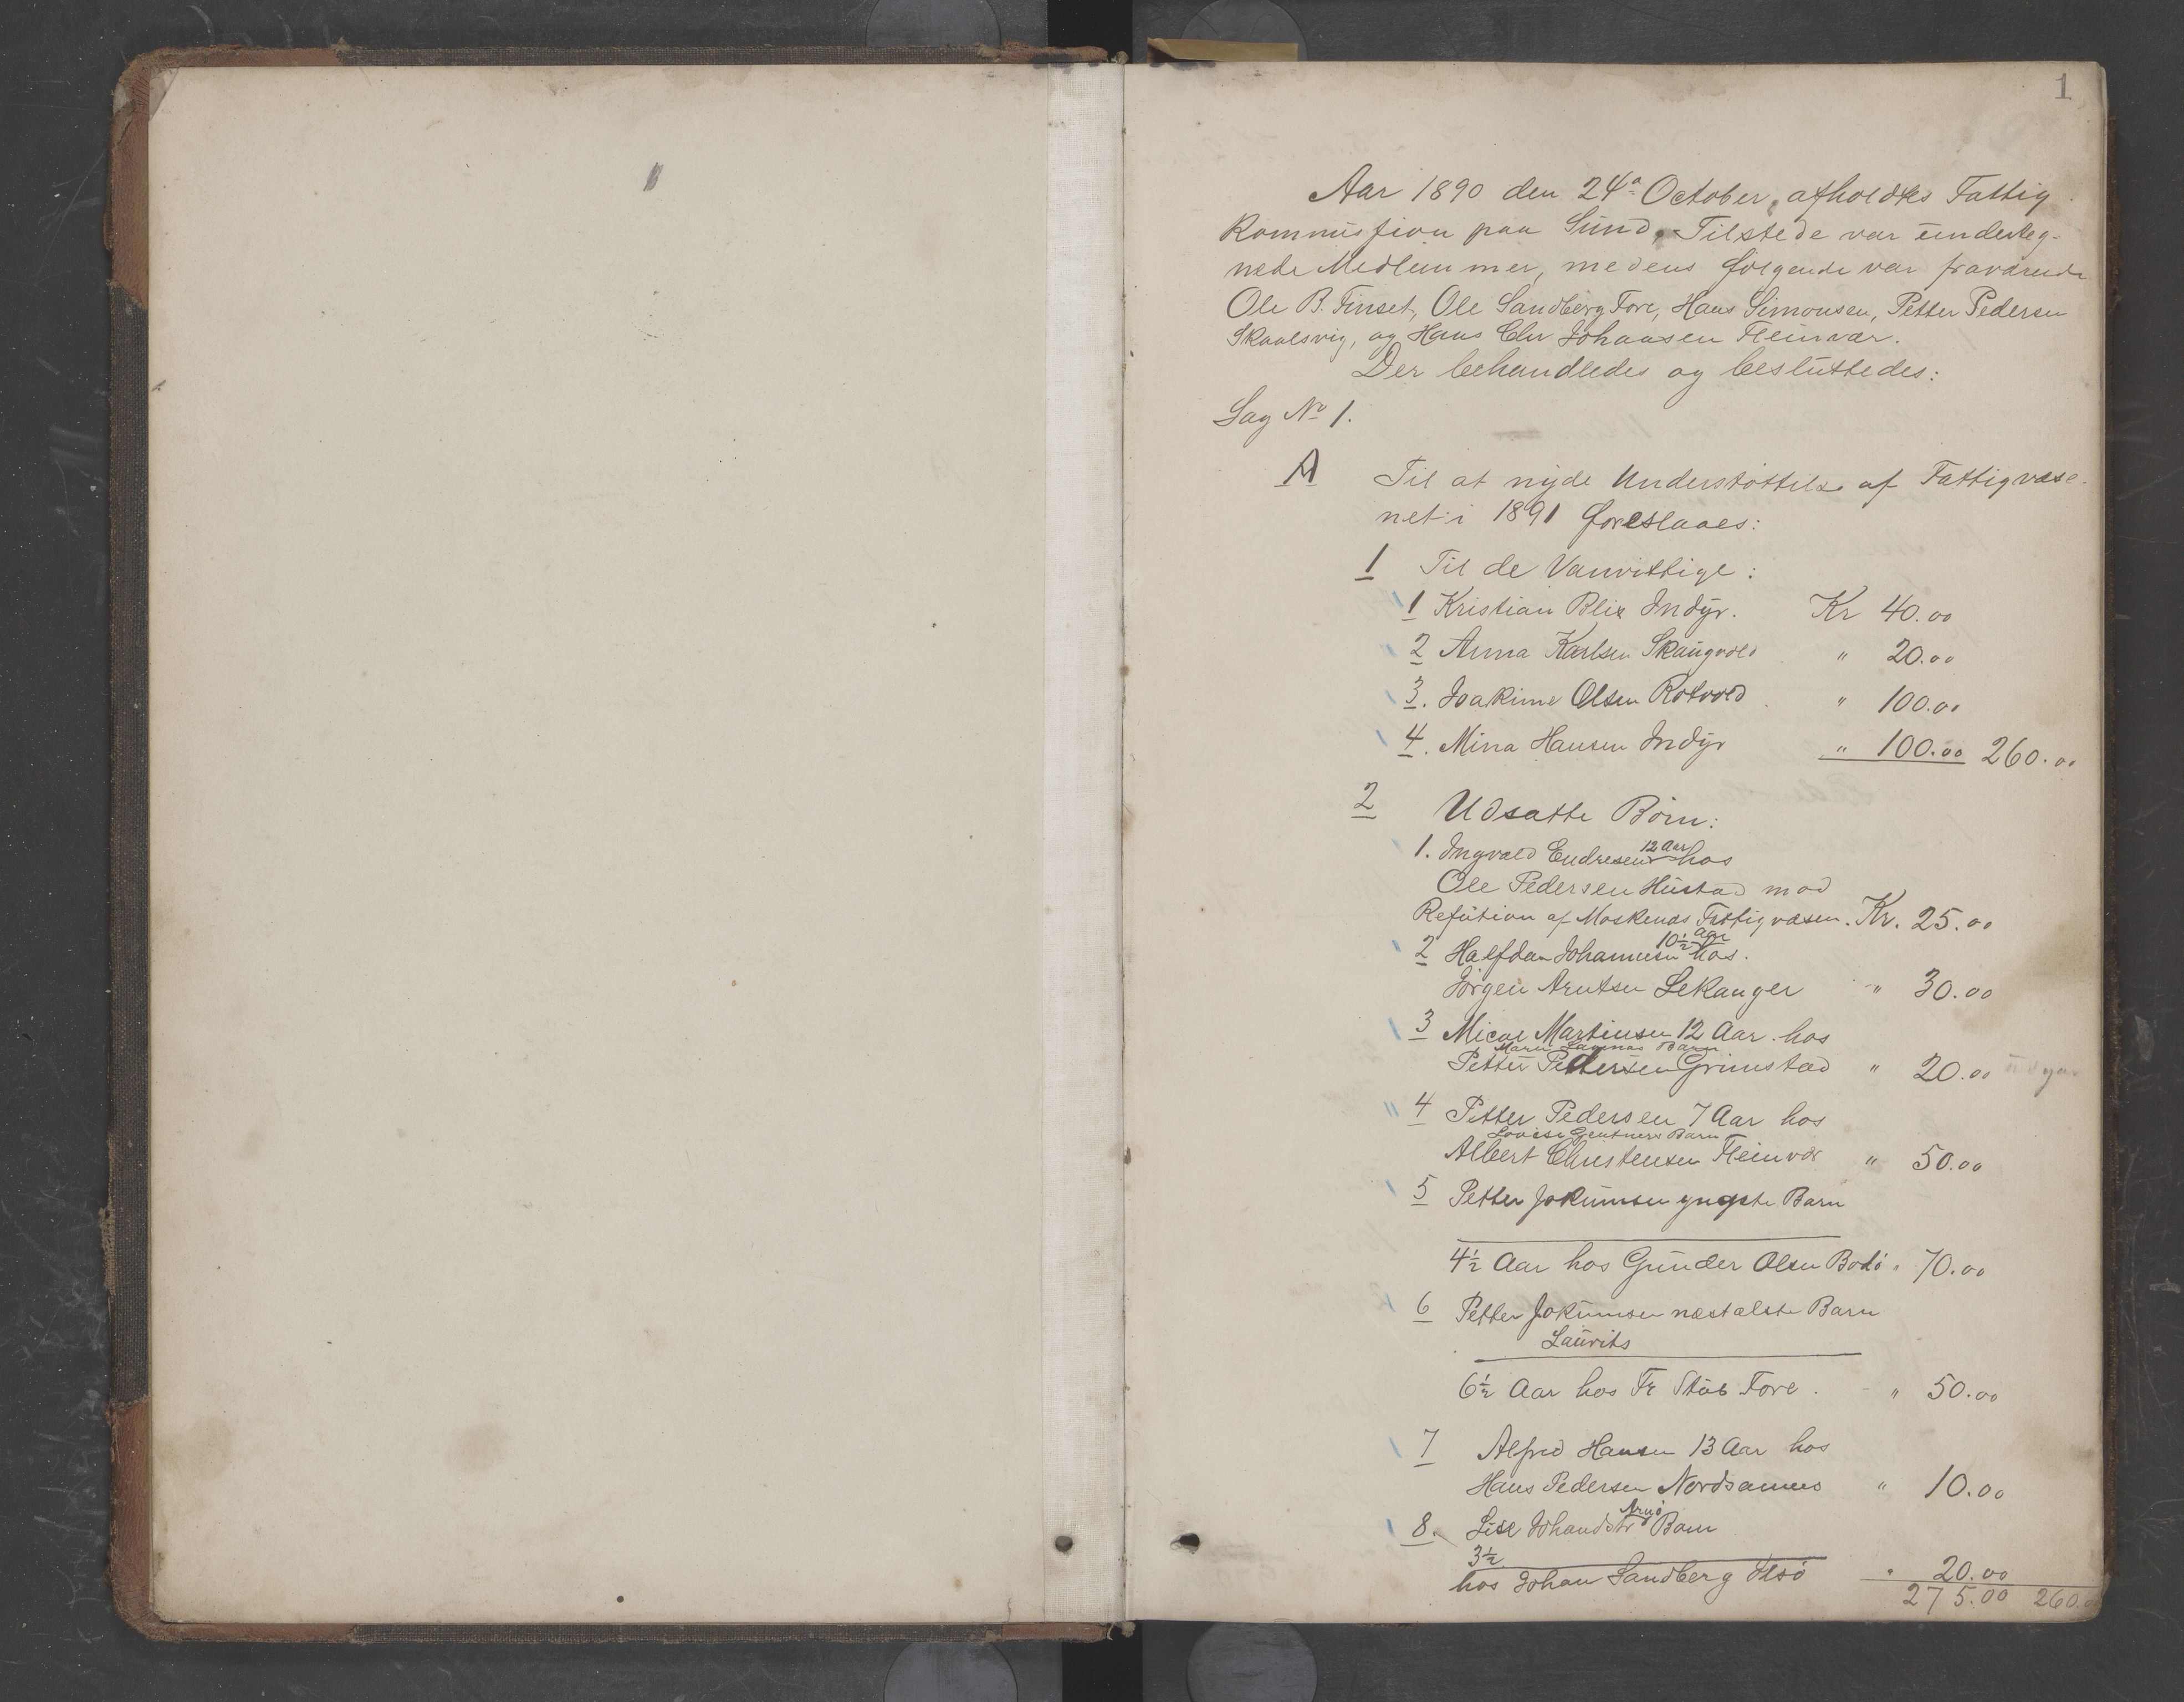 1
Aar 1890 den 24de October, afholdtes Fattig
Kommission paa Sund, Tilstede var underteg-
nede Medlemmer, medens følgende var fraværende
Ole B. Finset, Ole Sandberg Fore, Hans Simonsen, Petter Pedersen
Skaalsvig, og Hans Chr Johansen Fleinvær.
Der behandledes og besluttedes:
Sag No 1.
A Til at nyde Understøttelse af Fattigvæse-
net i 1891 foreslaaes:
1 Til de Vanvittige:
1 Kristian Blix Indyr. Kr 40.00
2 Anna Karlsen Skaugvold " 20.00
3. Joakime Olsen Rotvold " 100.00
4. Mina Hansen Indyr " 100.00 260.00
2 Udsatte Børn:
1. Ingvald Endresen 12 Aar hos
Ole Pedersen Hustad mod
Refution af Moskenæs Fattigvæsen. Kr. 25.00
2 Halfdan Johannesen 10½ Aar hos.
Jørgen Arntsen Lekanger " 30.00
3 Micael Martinsen 12 Aar hos
Maren Barn
Petter Pettersen Grimstad " 20.00 udgaar
4 Petter Pedersen 7 Aar hos
Lovise Barn
Albert Christensen Fleinvær " 50.00
5 Petter Jokumsen yngste Barn
4½ Aar hos Gunder Olsen Bodø " 70.00
6 Petter Jokumsen næstælste Barn
Laurits
6½ Aar hos Fr Stub Fore. " 50.00
7 Alfred Hansen 13 Aar hos
Hans Pedersen Nordsamnes " 10.00
8. Lise Johansdtr Arnø Barn
3½
hos Johan Sandberg " 20.00
275.00 260.00